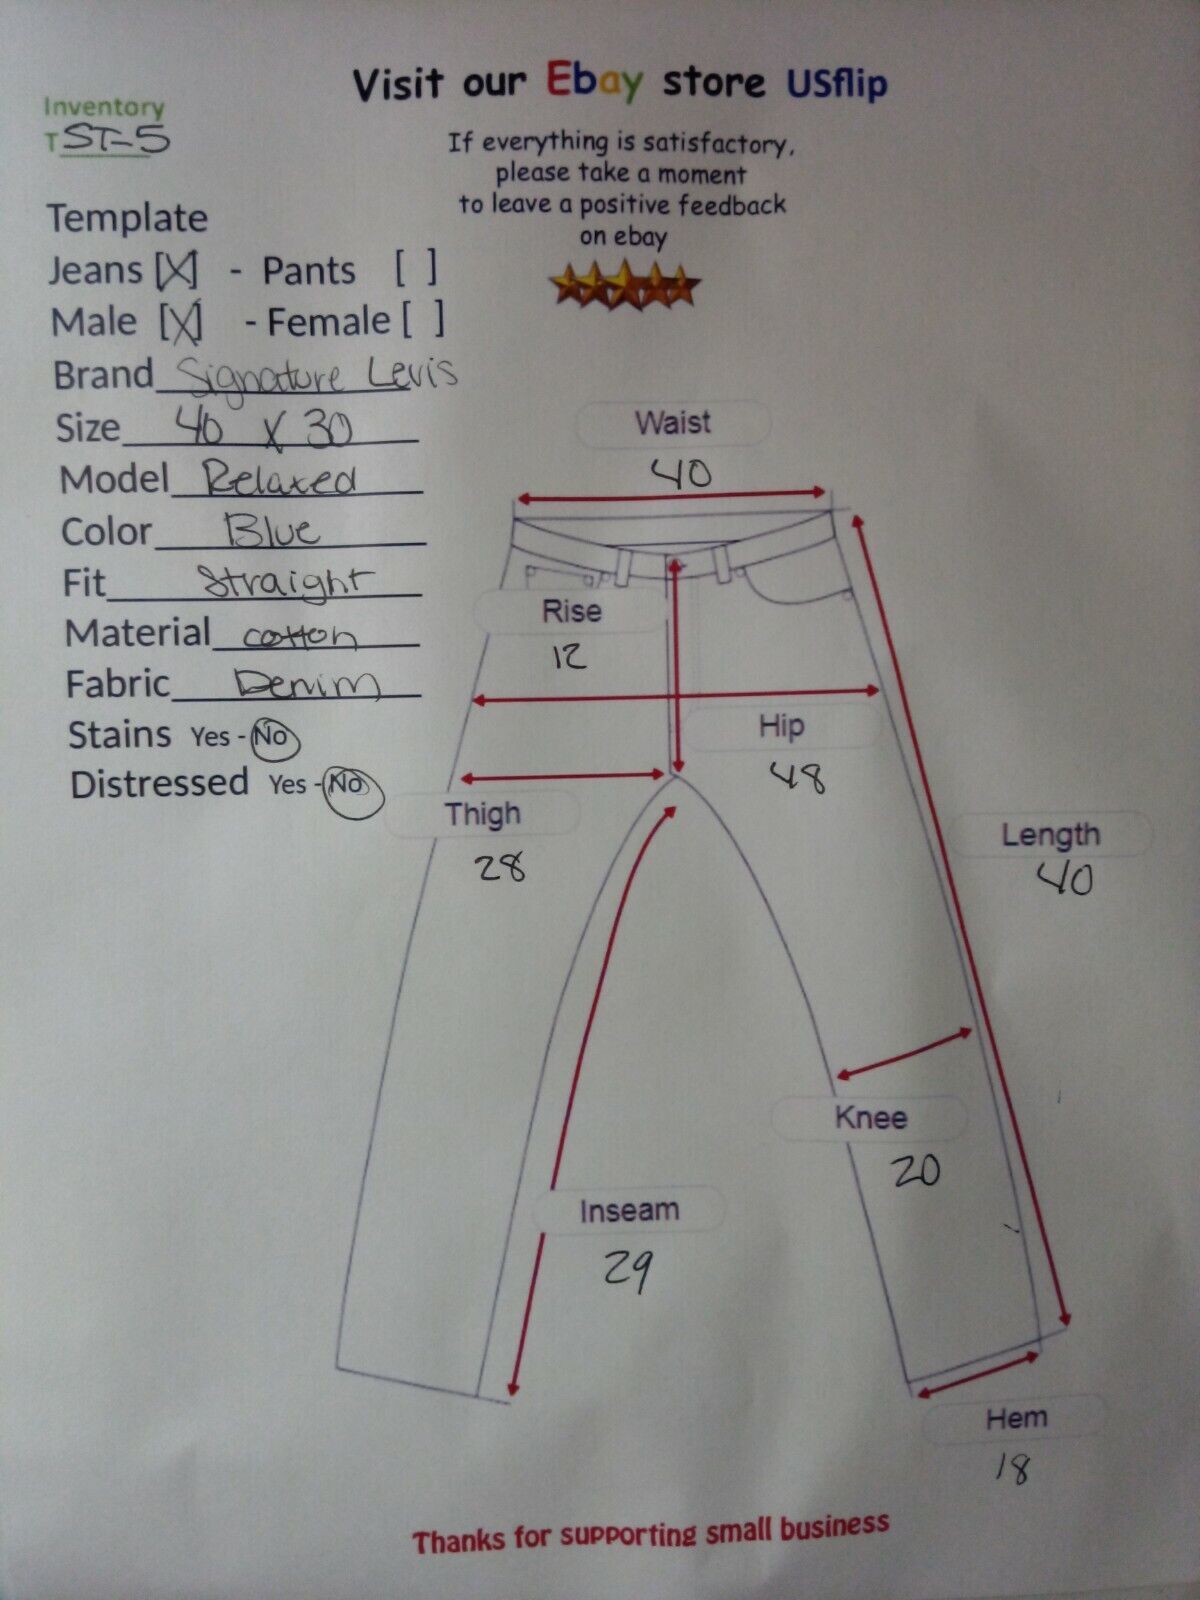 Visit our Ebay store USflip
Inventory
T ST-5
If everything is satisfactory,
please take a moment
to leave a positive feedback
on ebay
Template
Jeans [X] - Pants [ ]
Male [X] - Female [ ]
Brand Signature Levis
Size 40 x 30
Model Relaxed
Color Blue
Fit Straight
Material cotton
Fabric Denim
Stains Yes - No
Distressed Yes - No
Waist
40
Rise
12
Hip
48
Thigh
28
Length
40
Knee
20
Inseam
29
Hem
18
Thanks for supporting small business